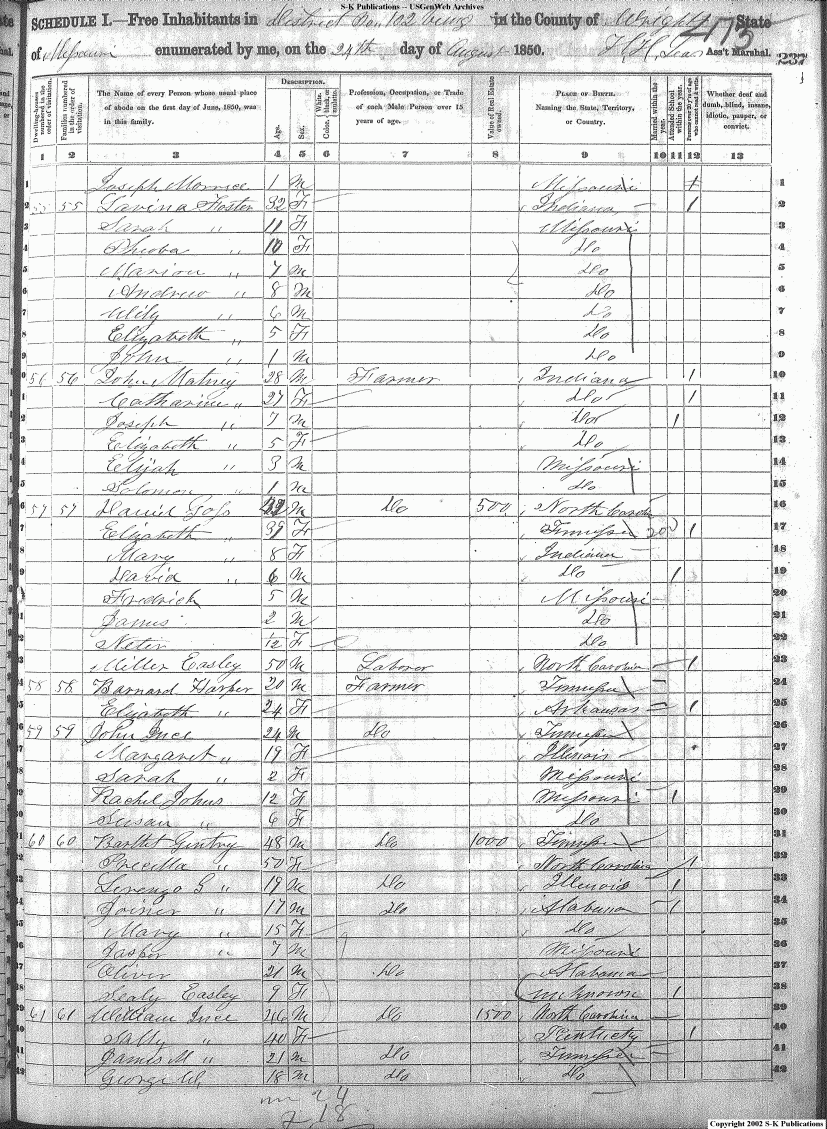 S-K Publications -- USGenWeb Archives
SCHEDULE I.—Free Inhabitants in District No. 102 being in the County of Wright State
of Missouri enumerated by me, on the 24th day of August 1850. Ass't Marshal.
473
237
DESCRIPTION.
Dwelling-houses numbered in the order of visitation.
Families numbered in the order of visitation.
The Name of every Person whose usual place of abode on the first day of June, 1850, was in this family.
Age.
Sex.
Color, White, black, or mulatto.
Profession, Occupation, or Trade of each Male Person over 15 years of age.
Value of Real Estate owned.
PLACE OF BIRTH. Naming the State, Territory, or Country.
Married within the year.
Attended School within the year.
Persons over 20 y'rs of age who cannot read & write.
Whether deaf and dumb, blind, insane, idiotic, pauper, or convict.
1 2 3 4 5 6 7 8 9 10 11 12 13
1 Joseph 1 M Missouri 1
2 55 55 Lavina Foster 32 F Indiana 1 2
3 Sarah " 11 F Missouri 3
4 Pheoba " 10 F Do 4
5 Marion " 7 M Do 5
6 Andrew " 8 M Do 6
7 Wily " 6 M Do 7
8 Elizabeth " 5 F Do 8
9 John " 1 M Do 9
10 56 56 John Matney 28 M Farmer Indiana 1 10
11 Catharine " 27 F Do 1 11
12 Joseph " 7 M Do 1 12
13 Elizabeth " 5 F Do 13
14 Elijah " 3 M Missouri 14
15 Solomon " 1 M Do 15
16 57 57 David Goss M Do 500 North Carolina 16
17 Elizabeth " 39 F Tennessee 1 17
18 Mary " 8 F Indiana 18
19 David " 6 M Do 1 19
20 Fredrick 5 M Missouri 20
21 James 2 M Do 21
22 F Do 22
23 Miller Easley 50 M Laborer North Carolina 1 23
24 58 58 Barnard Harper 20 M Farmer Tennessee 24
25 Elizabeth " 24 F Arkansas 1 25
26 59 59 John Ince 24 M Do Tennessee 26
27 Margaret " 19 F Illinois 27
28 Sarah " 2 F Missouri 28
29 Rachel Johns 12 F Missouri 1 29
30 Susan " 6 F Do 30
31 60 60 Bartlet Gentry 48 M Do 1000 Tennessee 31
32 Precilla " 50 F North Carolina 1 32
33 Lorenzo G " 19 M Do Illinois 1 33
34 Joiner " 17 M Do Alabama 1 34
35 Mary " 15 F Do 35
36 Jasper " 7 M Missouri 36
37 Oliver 21 M Do Alabama 37
38 Sealy Easley 9 F unknown 1 38
39 61 61 William Ince 46 M Do 1500 North Carolina 39
40 Sally " 40 F Kentucky 1 40
41 James M " 21 M Do Tennessee 41
42 George W, 18 M Do Do 42
m 24
F 18
Copyright 2002 S-K Publications